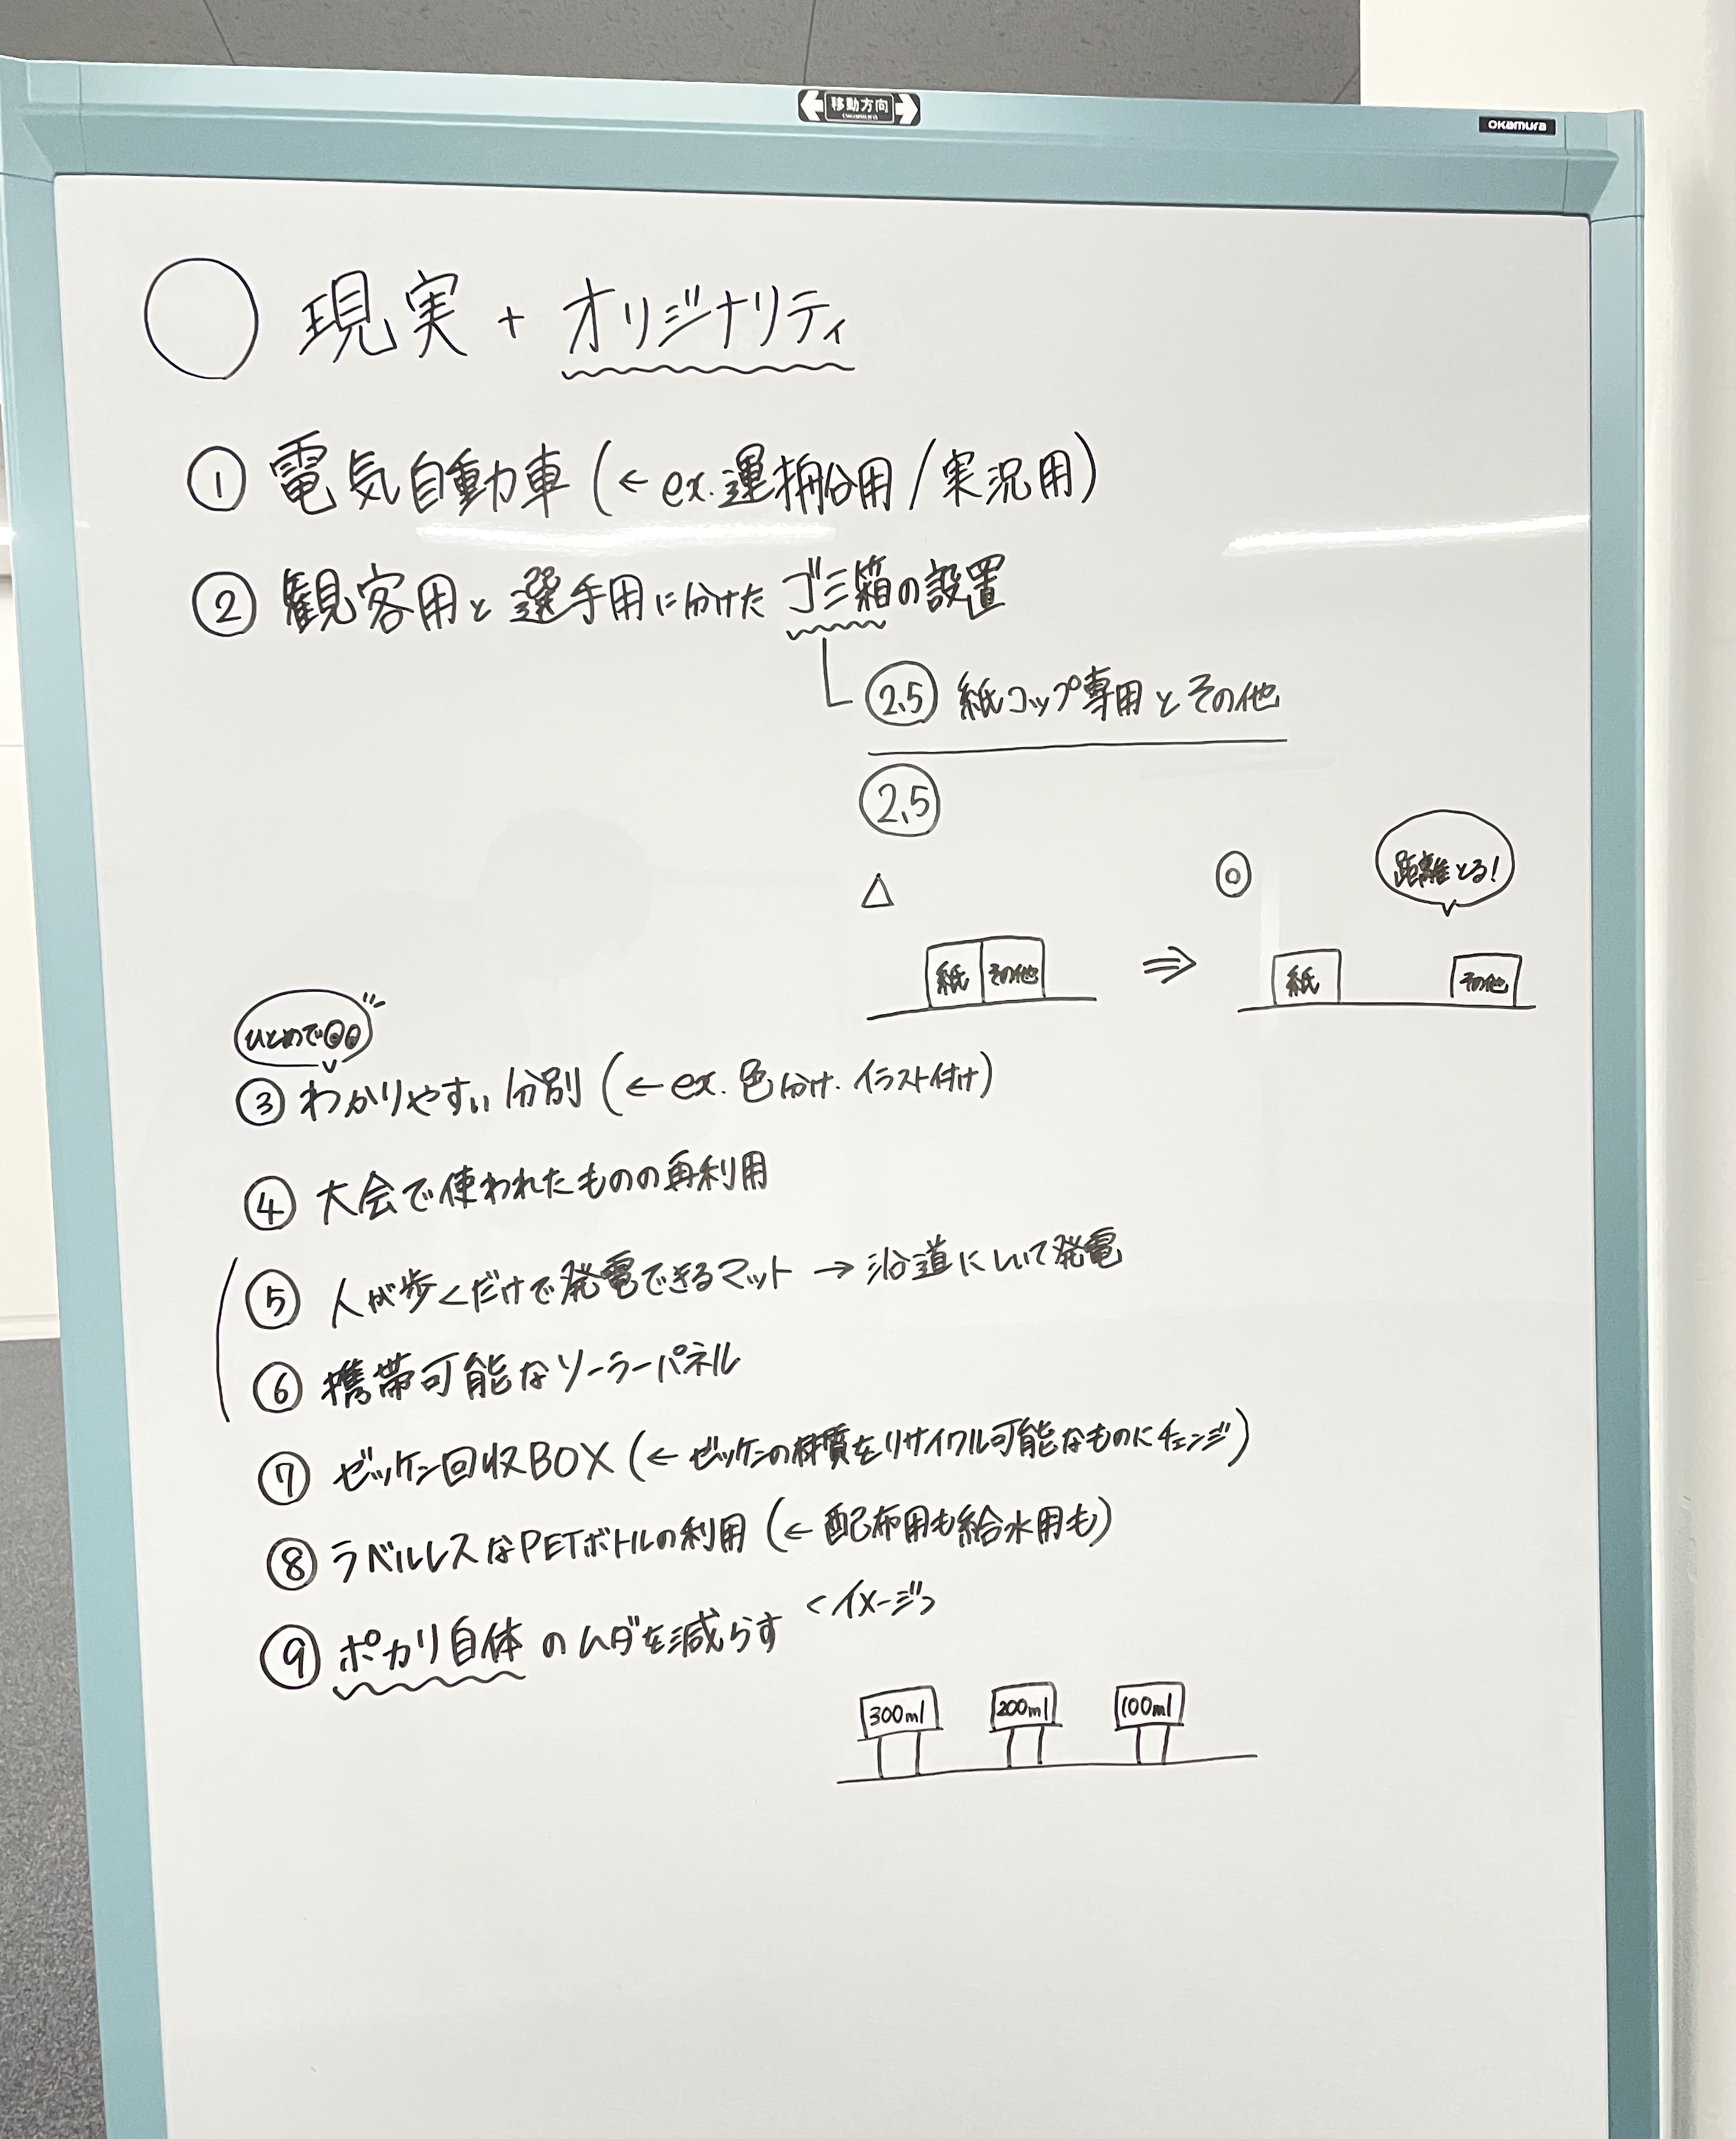 移動方向
okamura
◯ 現実 + オリジナリティ
① 電気自動車 (← ex. 運搬用 / 実況用)
② 観客用と選手用に分けた ゴミ箱の設置
2.5 紙コップ専用とその他
2.5
△
◎
距離とる!
紙 その他 ⇒ 紙 その他
ひとめで
③ わかりやすい分別 (← ex. 色分け・イラスト付け)
④ 大会で使われたものの再利用
⑤ 人が歩くだけで発電できるマット → 沿道にしいて発電
⑥ 携帯可能なソーラーパネル
⑦ ゼッケン回収BOX (← ゼッケンの材質をリサイクル可能なものにチェンジ)
⑧ ラベルレスなPETボトルの利用 (← 配布用も給水用も)
⑨ ポカリ自体のムダを減らす
<イメージ>
300ml 200ml 100ml